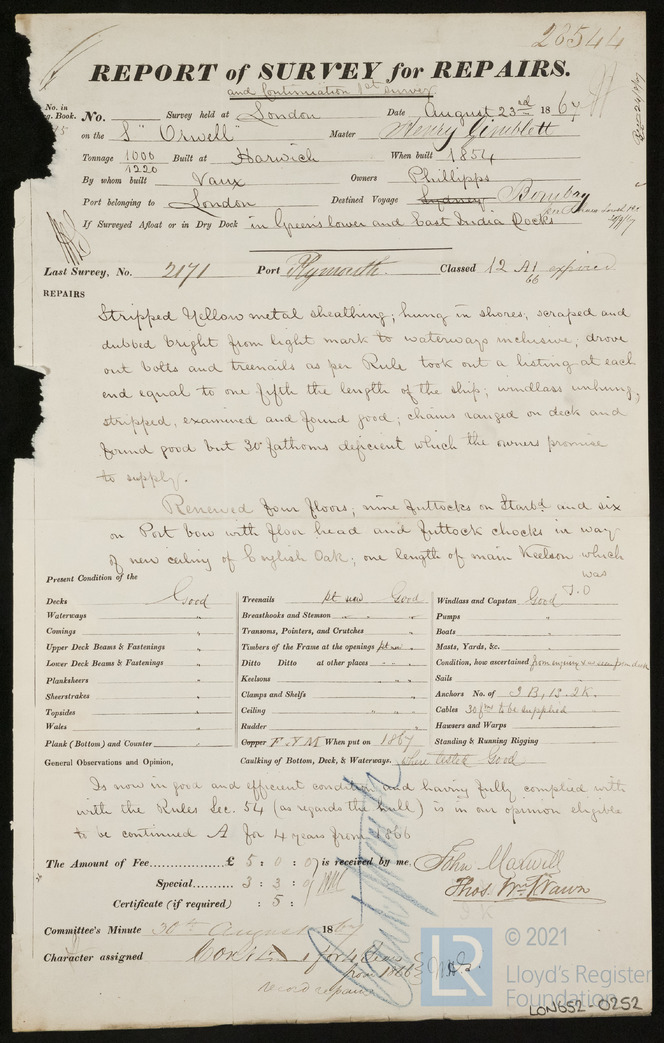 28544
REPORT of SURVEY for REPAIRS.
and Continuation 1st Survey
No. in
g. Book. No. Survey held at London Date August 23rd 1867
on the S "Orwell" Master Henry Gimblett
Tonnage 1000 Built at Harwich When built 1854
1220
By whom built Vaux Owners Phillipps
Port belonging to London Destined Voyage Sydney Bombay
If Surveyed Afloat or in Dry Dock in Green's lower and East India Docks
Last Survey, No. 2171 Port Plymouth. Classed 12 A1 expired
66
REPAIRS
Stripped Yellow metal sheathing; hung in shores, scraped and
dubbed bright from light mark to waterways inclusive, drove
out bolts and treenails as per Rule took out a listing at each
end equal to one fifth the length of the ship; windlass unhung,
stripped, examined and found good; chains ranged on deck and
found good but 30 fathoms deficient which the owners promise
to supply.
Renewed four floors; nine futtocks on Starbd and six
on Port bow with floor head and futtock chocks in way
of new ceiling of English Oak; one length of main Keelson which
was
T.O
Present Condition of the
Decks Good Treenails pt new Good Windlass and Capstan Good
Waterways " Breasthooks and Stemson " " Pumps "
Comings " Transoms, Pointers, and Crutches " Boats "
Upper Deck Beams & Fastenings " Timbers of the Frame at the openings pt new " Masts, Yards, &c. "
Lower Deck Beams & Fastenings " Ditto Ditto at other places " " Condition, how ascertained from enquiry &
Planksheers " Keelsons " " Sails "
Sheerstrakes " Clamps and Shelfs " Anchors No. of 3 B, 1 S. 2 K.
Topsides " Ceiling " " " Cables 30 fms to be supplied
Wales " Rudder " Hawsers and Warps "
Plank (Bottom) and Counter " Copper F & M When put on 1867 Standing & Running Rigging "
General Observations and Opinion, Caulking of Bottom, Deck, & Waterways. where tested Good
Is now in good and efficient condition and having fully complied with
with the Rules Sec. 54 (as regards the hull) is in our opinion eligible
to be continued A for 4 years from 1866
The Amount of Fee £ 5 : 0 : 0 is received by me, John Maxwell
Special 3 : 3 : 0 Thos. Wm. Wawn
Certificate (if required) : 5 :
Committee's Minute 30th August 1867
Character assigned Contd A 1 for 4 Years
from 1866
record repairs
© 2021
LR
Lloyd's Register
Foundation
LON652-0252